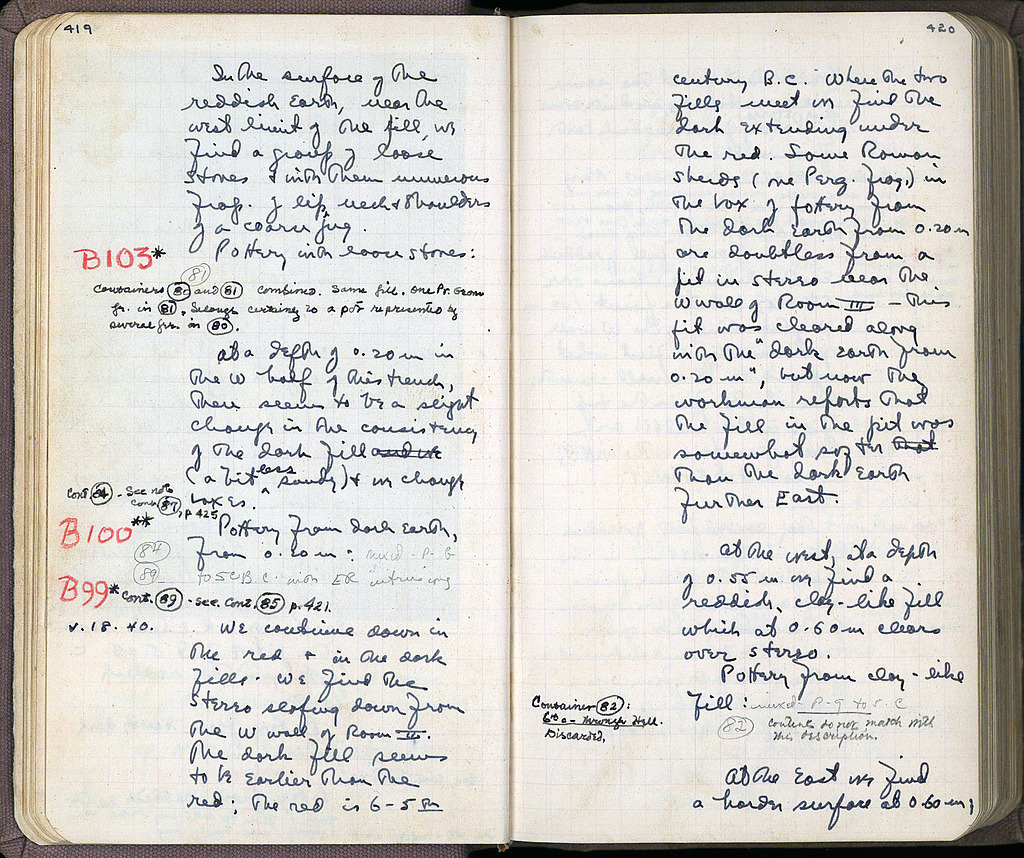 419
In the surface of the
reddish earth, near the
west limit of the fill, we
find a group of loose
stones & with them numerous
frag. of lip, neck & shoulders
of a coarse jug.
B103*
Pottery with loose stones:
81
Containers 80 and 81 combined. Same fill. One Pr. Geom
fr. in 81. Belongs certainly to a pot represented by
several frr. in 80.
At a depth of 0.20 m in
the W half of this trench,
there seems to be a slight
change in the consistency
of the dark fill and we
(a bit less sandy) & we change
boxes.
Cont. 84 - See note
cont. 89, p. 425
B100**
Pottery from dark earth,
from 0.20 m: mixed P-G
84
89
to 5 C B.C. with ER intrusions
B99* Cont. 89 - see. Cont. 85 p. 421.
V. 18. 40.
We continue down in
the red & in the dark
fills. We find the
stereo sloping down from
the W wall of Room III.
The dark fill seems
to be earlier than the
red; the red is 6-5th
420
century B.C. Where the two
fills meet we find the
dark extending under
the red. Some Roman
sherds (one Perg. frag.) in
the box of pottery from
the dark earth from 0.20 m
are doubtless from a
pit in stereo near the
W wall of Room III - this
pit was cleared along
with the "dark earth from
0.20 m", but now the
workman reports that
the fill in the pit was
somewhat softer that
than the dark earth
further East.
At the west, at a depth
of 0.55 m we find a
reddish, clay-like fill
which at 0.60 m clears
over stereo.
Pottery from clay-like
fill: mixed P-G to 5 C
Container 82:
6th c - through Hell.
Discarded.
82 contents do not match with
this description.
At the East we find
a harder surface at 0.60 m;